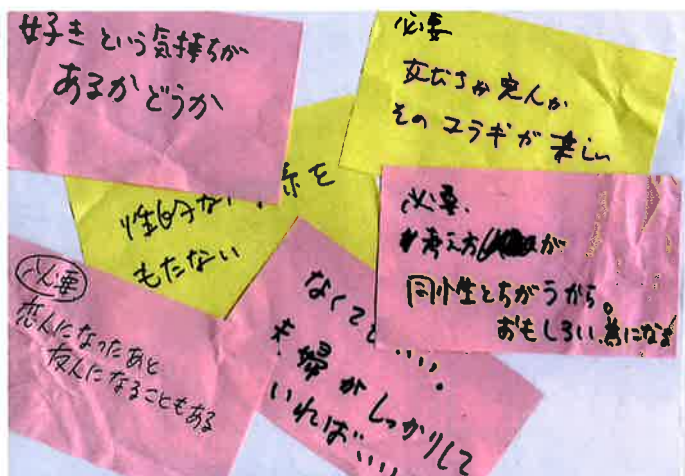 好きという気持ちが
あるかどうか
必要
友だちか恋人か
そのユラギが楽しい
性的な 係を
もたない
必要.
考え方 が
同性とちがうから。
おもしろい.為になる
必要
恋人になったあと
友人になることもある
なくても
いい。
夫婦がしっかりして
いればいい